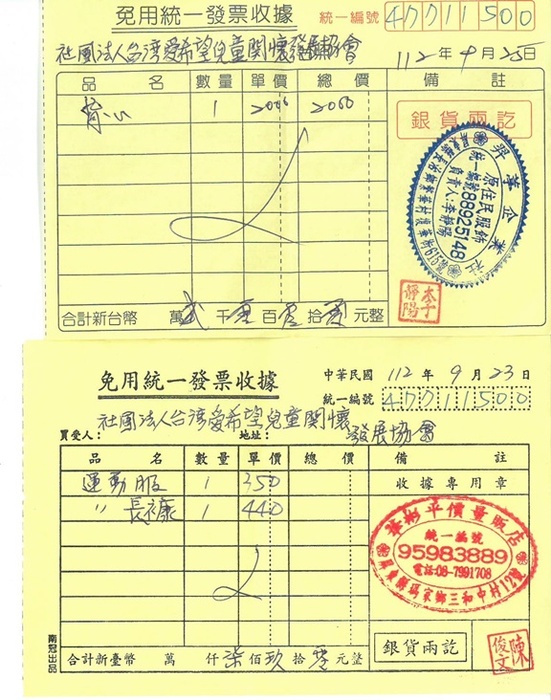 免用統一發票收據
統一編號 47711500
社團法人台灣愛希望兒童關懷發展協會
112年9月25日
品名 數量 單價 總價 備註
背心 1 2000 2000
銀貨兩訖
昇華企業社
原住民服飾
統一編號
88925148
負責人:李靜陽
李靜陽
合計新台幣 萬 貳仟零佰零拾零元整
免用統一發票收據
中華民國 112年9月23日
統一編號 47711500
社團法人台灣愛希望兒童關懷發展協會
買受人: 地址:
品名 數量 單價 總價 備註
運動服 1 350
收據專用章
〃 長褲 1 440
華彬平價量販店
統一編號
95983889
電話:08-7991708
屏東縣瑪家鄉三和中村12號
南冠出品
合計新臺幣 萬 仟 柒佰玖拾零元整
銀貨兩訖
陳俊文